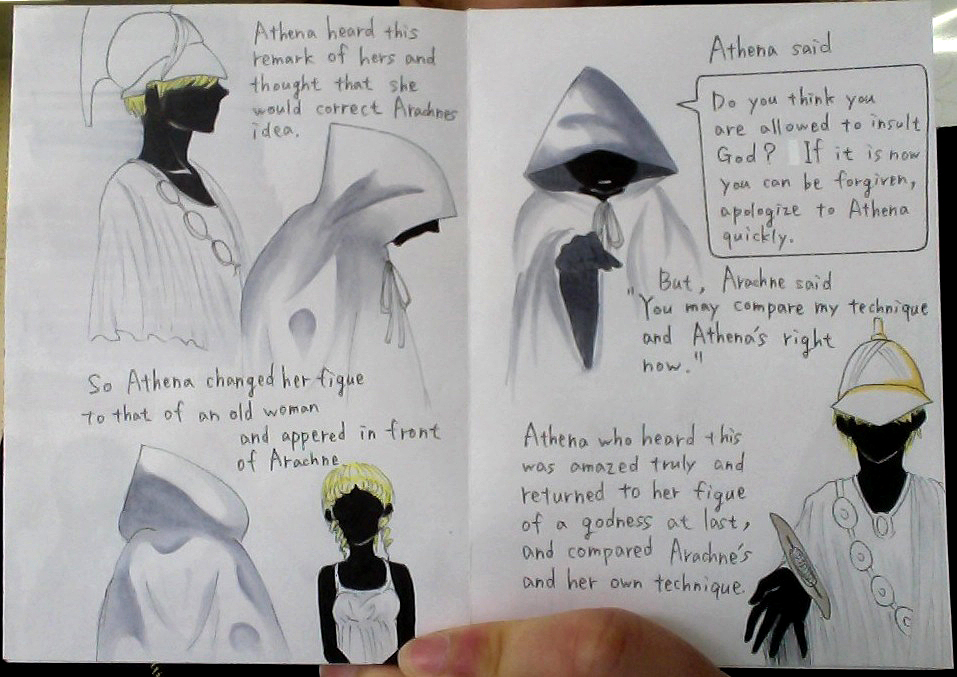 Athena heard this
remark of hers and
thought that she
would correct Arachnes
idea.
So Athena changed her figue
to that of an old woman
and appered in front
of Arachne
Athena said
Do you think you
are allowed to insult
God? If it is now
you can be forgiven,
apologize to Athena
quickly.
But, Arachne said
"You may compare my technique
and Athena's right
now."
Athena who heard this
was amazed truly and
returned to her figue
of a godness at last,
and compared Arachne's
and her own technique.